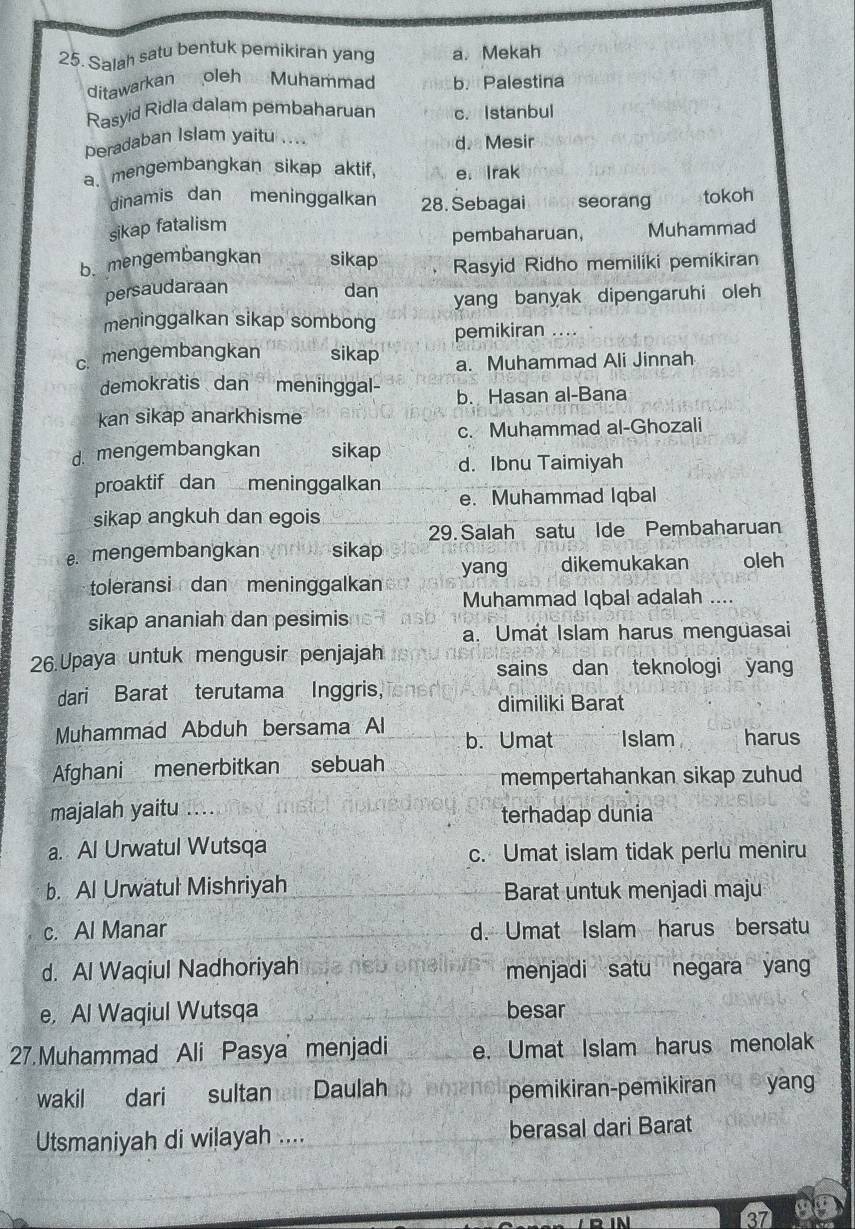 25. Salah satu bentuk pemikiran yang
ditawarkan oleh Muhammad
Rasyid Ridla dalam pembaharuan
peradaban Islam yaitu ....
a. mengembangkan sikap aktif,
dinamis dan meninggalkan
sikap fatalism
b. mengembangkan sikap
persaudaraan dan
meninggalkan sikap sombong
c. mengembangkan sikap
demokratis dan meninggal-
kan sikap anarkhisme
d. mengembangkan sikap
proaktif dan meninggalkan
sikap angkuh dan egois
e. mengembangkan sikap
toleransi dan meninggalkan
sikap ananiah dan pesimis
26. Upaya untuk mengusir penjajah
dari Barat terutama Inggris,
Muhammad Abduh bersama Al
Afghani menerbitkan sebuah
majalah yaitu ....
a. Al Urwatul Wutsqa
b. Al Urwatul Mishriyah
c. Al Manar
d. Al Waqiul Nadhoriyah
e. Al Waqiul Wutsqa
27. Muhammad Ali Pasya menjadi
wakil dari sultan Daulah
Utsmaniyah di wilayah ....
a. Mekah
b. Palestina
c. Istanbul
d. Mesir
e. Irak
28. Sebagai seorang tokoh
pembaharuan, Muhammad
Rasyid Ridho memiliki pemikiran
yang banyak dipengaruhi oleh
pemikiran ....
a. Muhammad Ali Jinnah
b. Hasan al-Bana
c. Muhammad al-Ghozali
d. Ibnu Taimiyah
e. Muhammad Iqbal
29. Salah satu Ide Pembaharuan
yang dikemukakan oleh
Muhammad Iqbal adalah ....
a. Umat Islam harus menguasai
sains dan teknologi yang
dimiliki Barat
b. Umat Islam harus
mempertahankan sikap zuhud
terhadap dunia
c. Umat islam tidak perlu meniru
Barat untuk menjadi maju
d. Umat Islam harus bersatu
menjadi satu negara yang
besar
e. Umat Islam harus menolak
pemikiran-pemikiran yang
berasal dari Barat
37